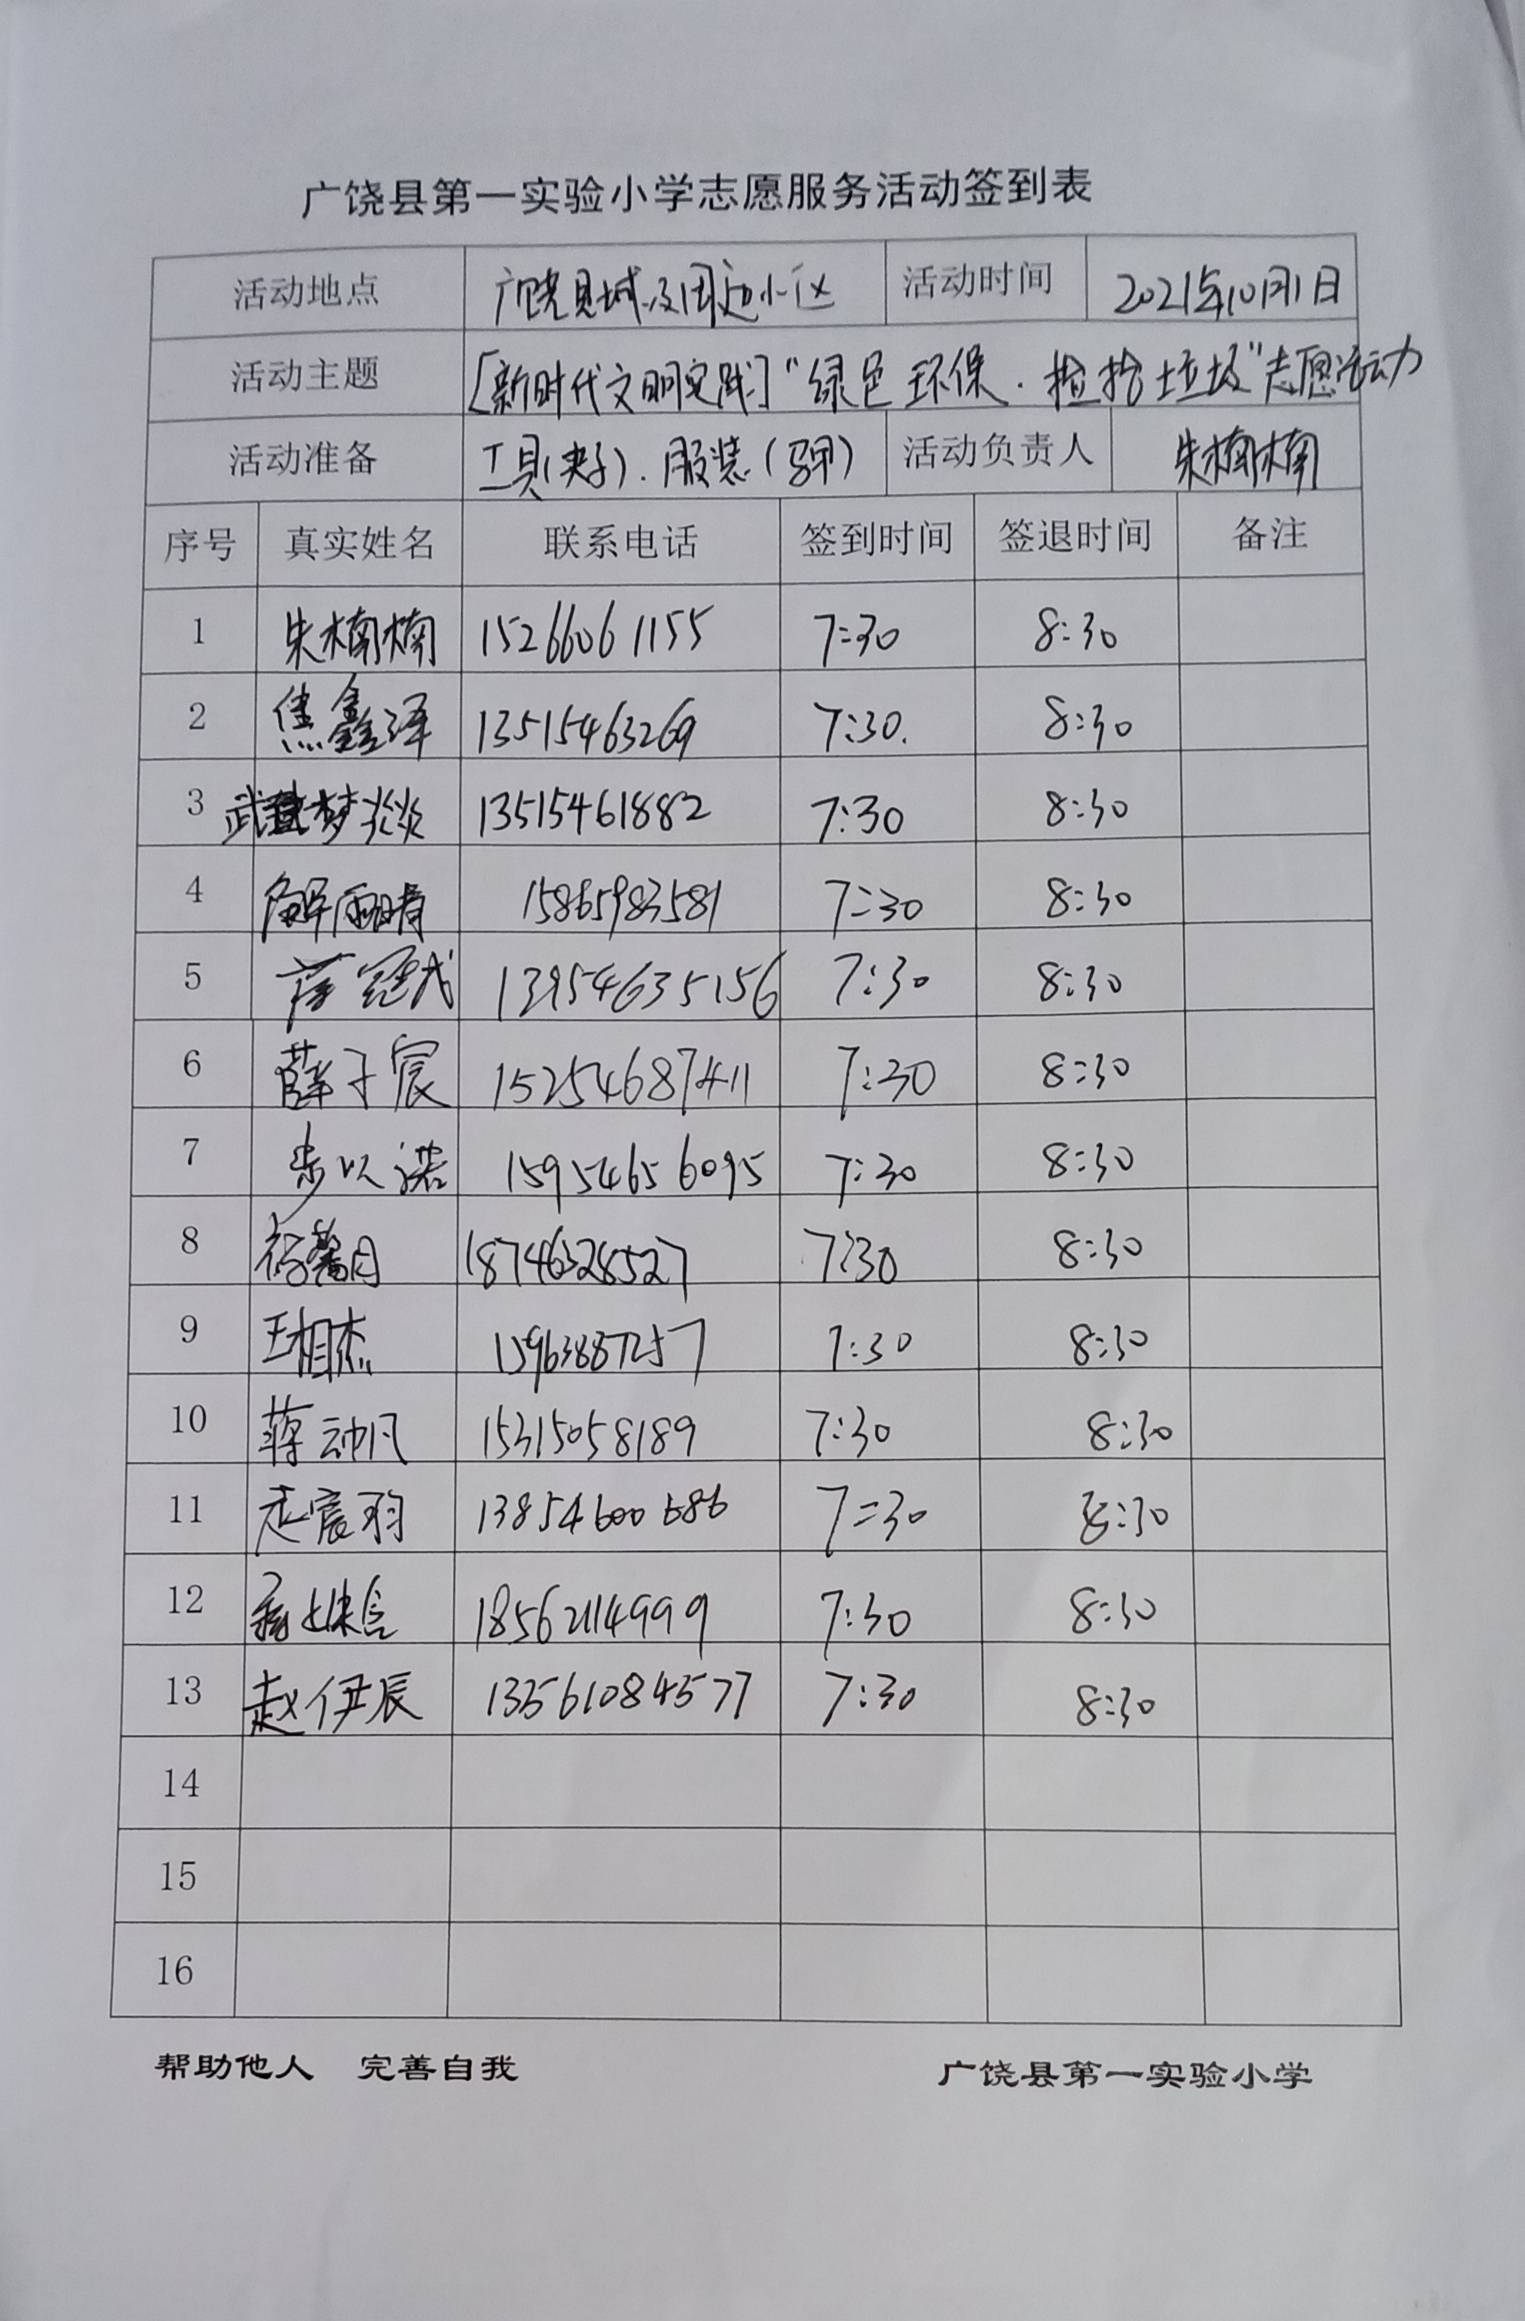 广饶县第一实验小学志愿服务活动签到表
活动地点 广饶县城及周边小区 活动时间 2021年10月1日
活动主题 [新时代文明实践]“绿色环保·捡拾垃圾”志愿活动
活动准备 工具(夹子).服装(马甲) 活动负责人 朱楠楠
序号 真实姓名 联系电话 签到时间 签退时间 备注
1 朱楠楠 15266061155 7:30 8:30
2 焦鑫泽 13515463269 7:30. 8:30
3 武梦炎 13515461882 7:30 8:30
4 解雨晴 15865983581 7:30 8:30
5 冠戎 13954635156 7:30 8:30
6 薛子宸 15254687411 7:30 8:30
7 步以诺 15954656095 7:30 8:30
8 馨月 18746328527 7:30 8:30
9 王相杰 15963887257 7:30 8:30
10 蒋动凡 15315058189 7:30 8:30
11 宸羽 13854600686 7:30 8:30
12 18562114999 7:30 8:30
13 赵伊辰 13561084577 7:30 8:30
14
15
16
帮助他人 完善自我 广饶县第一实验小学